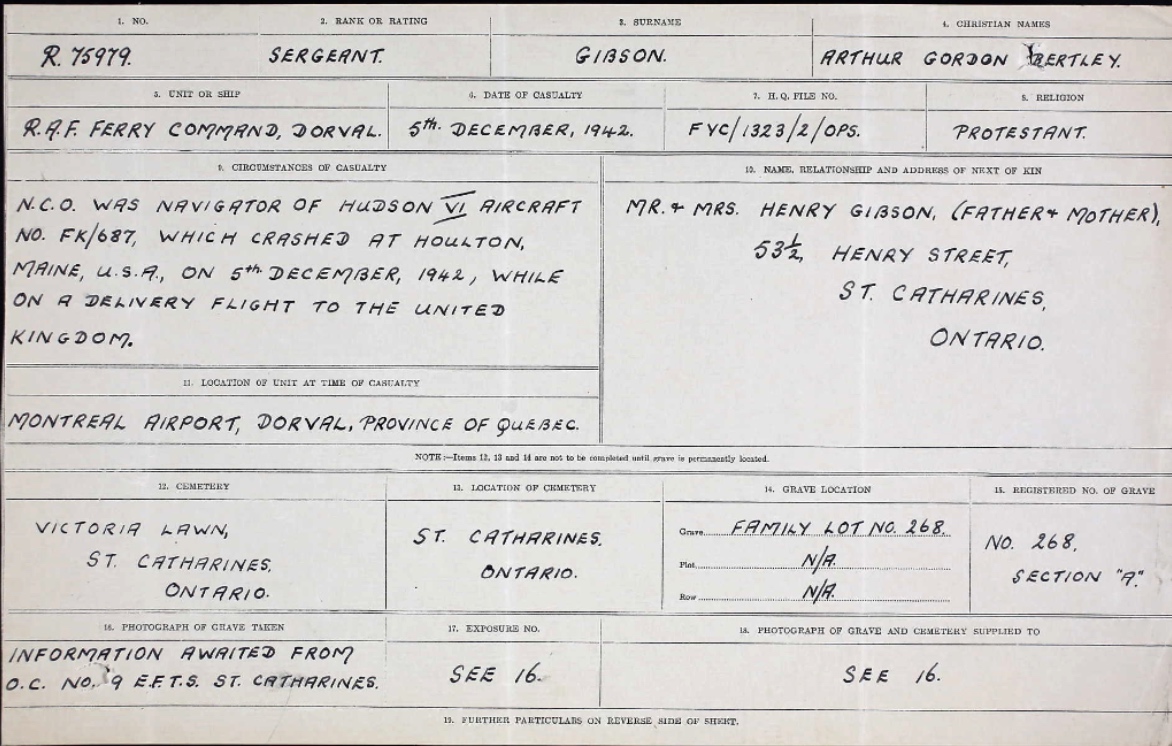 1. NO.
2. RANK OR RATING
3. SURNAME
4. CHRISTIAN NAMES
R. 75979.
SERGEANT.
GIBSON.
ARTHUR GORDON BERTLEY.
5. UNIT OR SHIP
6. DATE OF CASUALTY
7. H.Q. FILE NO.
8. RELIGION
R.A.F. FERRY COMMAND, DORVAL.
5th. DECEMBER, 1942.
FYC/1323/2/OPS.
PROTESTANT.
9. CIRCUMSTANCES OF CASUALTY
N.C.O. WAS NAVIGATOR OF HUDSON VI AIRCRAFT
NO. FK/687, WHICH CRASHED AT HOULTON,
MAINE, U.S.A., ON 5th. DECEMBER, 1942, WHILE
ON A DELIVERY FLIGHT TO THE UNITED
KINGDOM.
10. NAME, RELATIONSHIP AND ADDRESS OF NEXT OF KIN
MR. & MRS. HENRY GIBSON, (FATHER & MOTHER),
53½, HENRY STREET,
ST. CATHARINES,
ONTARIO.
11. LOCATION OF UNIT AT TIME OF CASUALTY
MONTREAL AIRPORT, DORVAL, PROVINCE OF QUEBEC.
NOTE:—Items 12, 13 and 14 are not to be completed until grave is permanently located.
12. CEMETERY
13. LOCATION OF CEMETERY
14. GRAVE LOCATION
15. REGISTERED NO. OF GRAVE
VICTORIA LAWN,
ST. CATHARINES,
ONTARIO.
ST. CATHARINES,
ONTARIO.
Grave FAMILY LOT NO. 268.
Plot N/A.
Row N/A.
NO. 268,
SECTION "A".
16. PHOTOGRAPH OF GRAVE TAKEN
17. EXPOSURE NO.
18. PHOTOGRAPH OF GRAVE AND CEMETERY SUPPLIED TO
INFORMATION AWAITED FROM
O.C. NO. 9 E.F.T.S. ST. CATHARINES.
SEE 16.
SEE 16.
19. FURTHER PARTICULARS ON REVERSE SIDE OF SHEET.